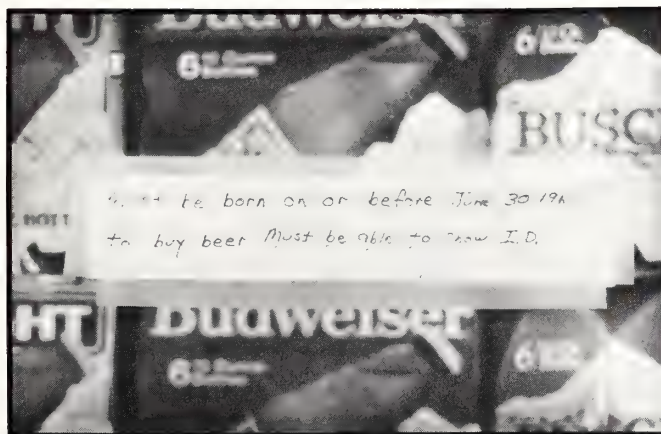 HT
Budweiser
6
6
BUSC
BOTT
be born on or before June 30
to buy beer Must be able to show I.D.
HT
Budweiser
6
6